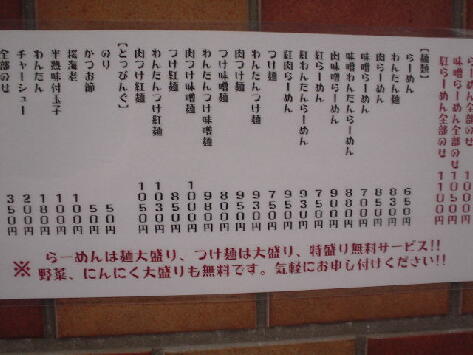 らーめん全部のせ
味噌らーめん全部のせ
紅らーめん全部のせ 1100円
【麺類】
らーめん 650円
わんたん麺 830円
肉らーめん 850円
味噌らーめん 700円
味噌わんたんらーめん 880円
肉味噌らーめん 900円
紅らーめん 750円
紅わんたんらーめん 930円
紅肉らーめん 950円
つけ麺 750円
わんたんつけ麺 930円
肉つけ麺 950円
つけ味噌麺 800円
わんたんつけ味噌麺 980円
肉つけ味噌麺 1000円
つけ紅麺 850円
わんたんつけ紅麺 1030円
肉つけ紅麺 1050円
【とっぴんぐ】
のり 50円
かつお節 50円
桜海老 100円
半熟味付玉子 100円
わんたん 180円
チャーシュー 200円
全部のせ 350円
らーめんは麺大盛り、つけ麺は大盛り、特盛り無料サービス!!
※ 野菜、にんにく大盛りも無料です。気軽にお申し付けください!!